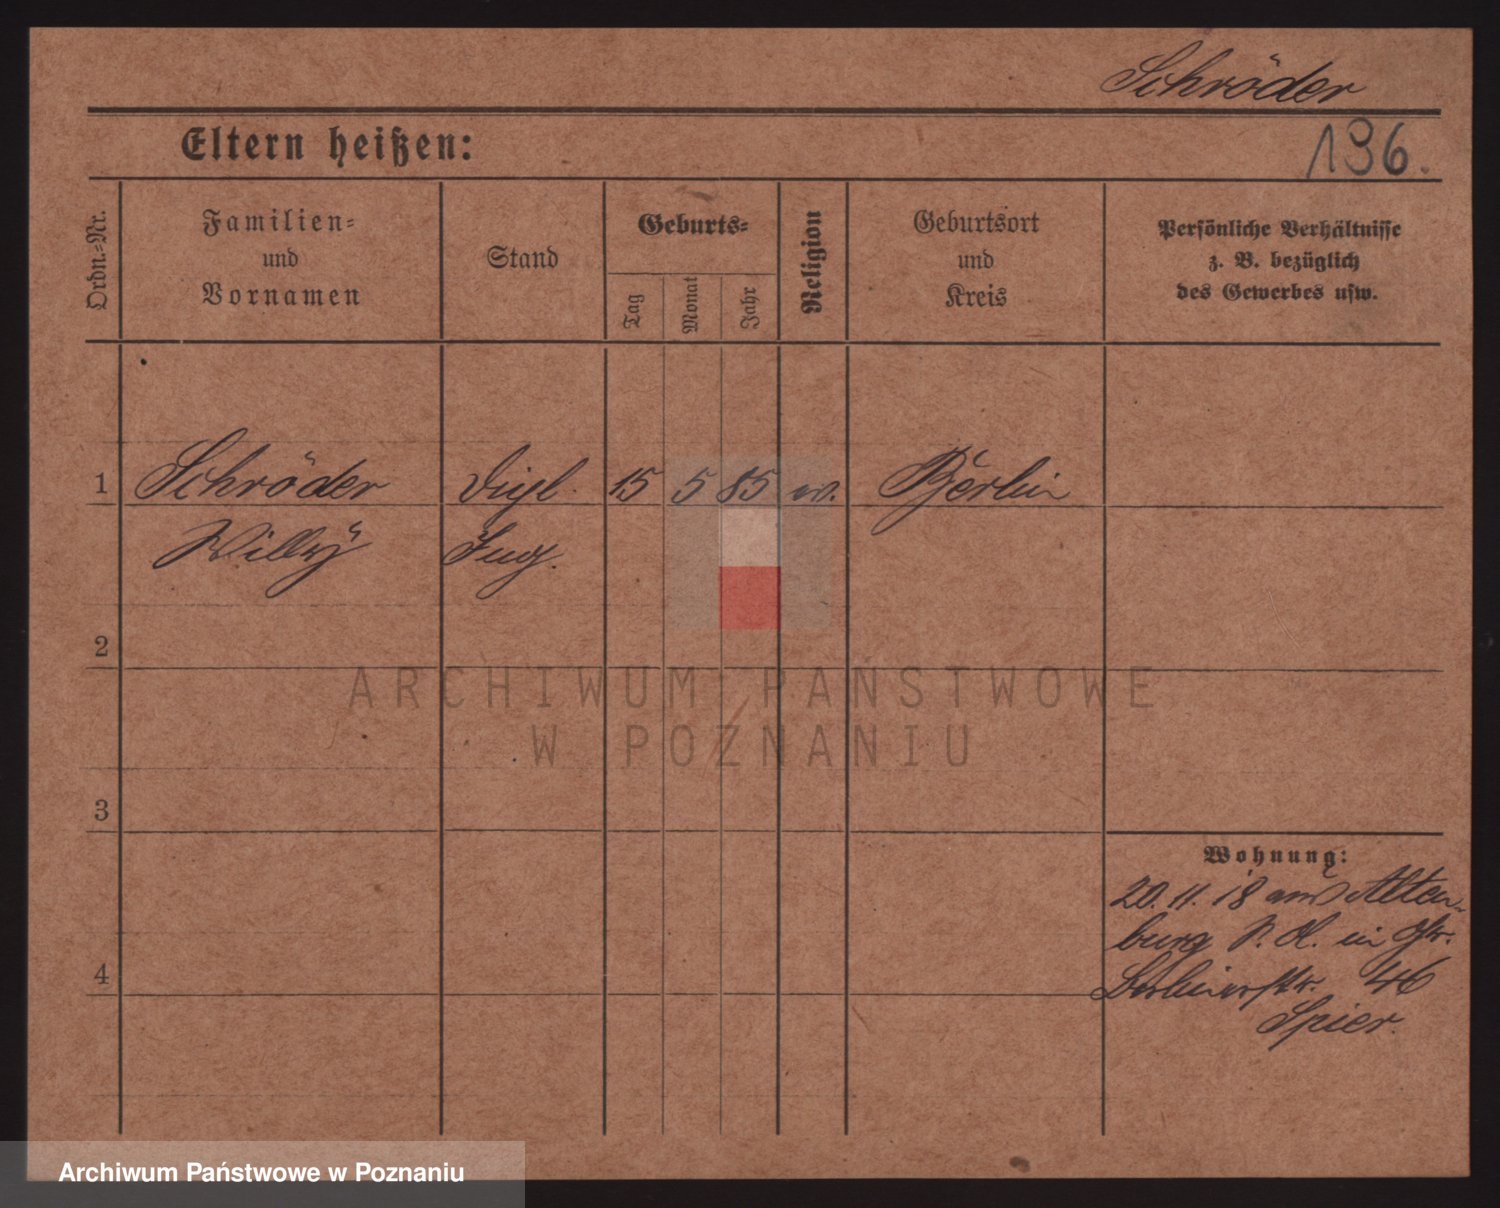 Schröder
Eltern heißen:
196.
Ordn.-Nr.
Familien-
und
Vornamen
Stand
Geburts-
Tag
Monat
Jahr
Religion
Geburtsort
und
Kreis
Persönliche Verhältnisse
z. B. bezüglich
des Gewerbes usw.
1 Schröder Dipl. 15 5 85 ev. Berlin
Willy Ing.
2
ARCHIWUM PAŃSTWOWE
W POZNANIU
3
Wohnung:
20. 11. 18 aus Alten-
burg S. A. in Gr.
4
Berlinerstr. 46
Spier.
Archiwum Państwowe w Poznaniu